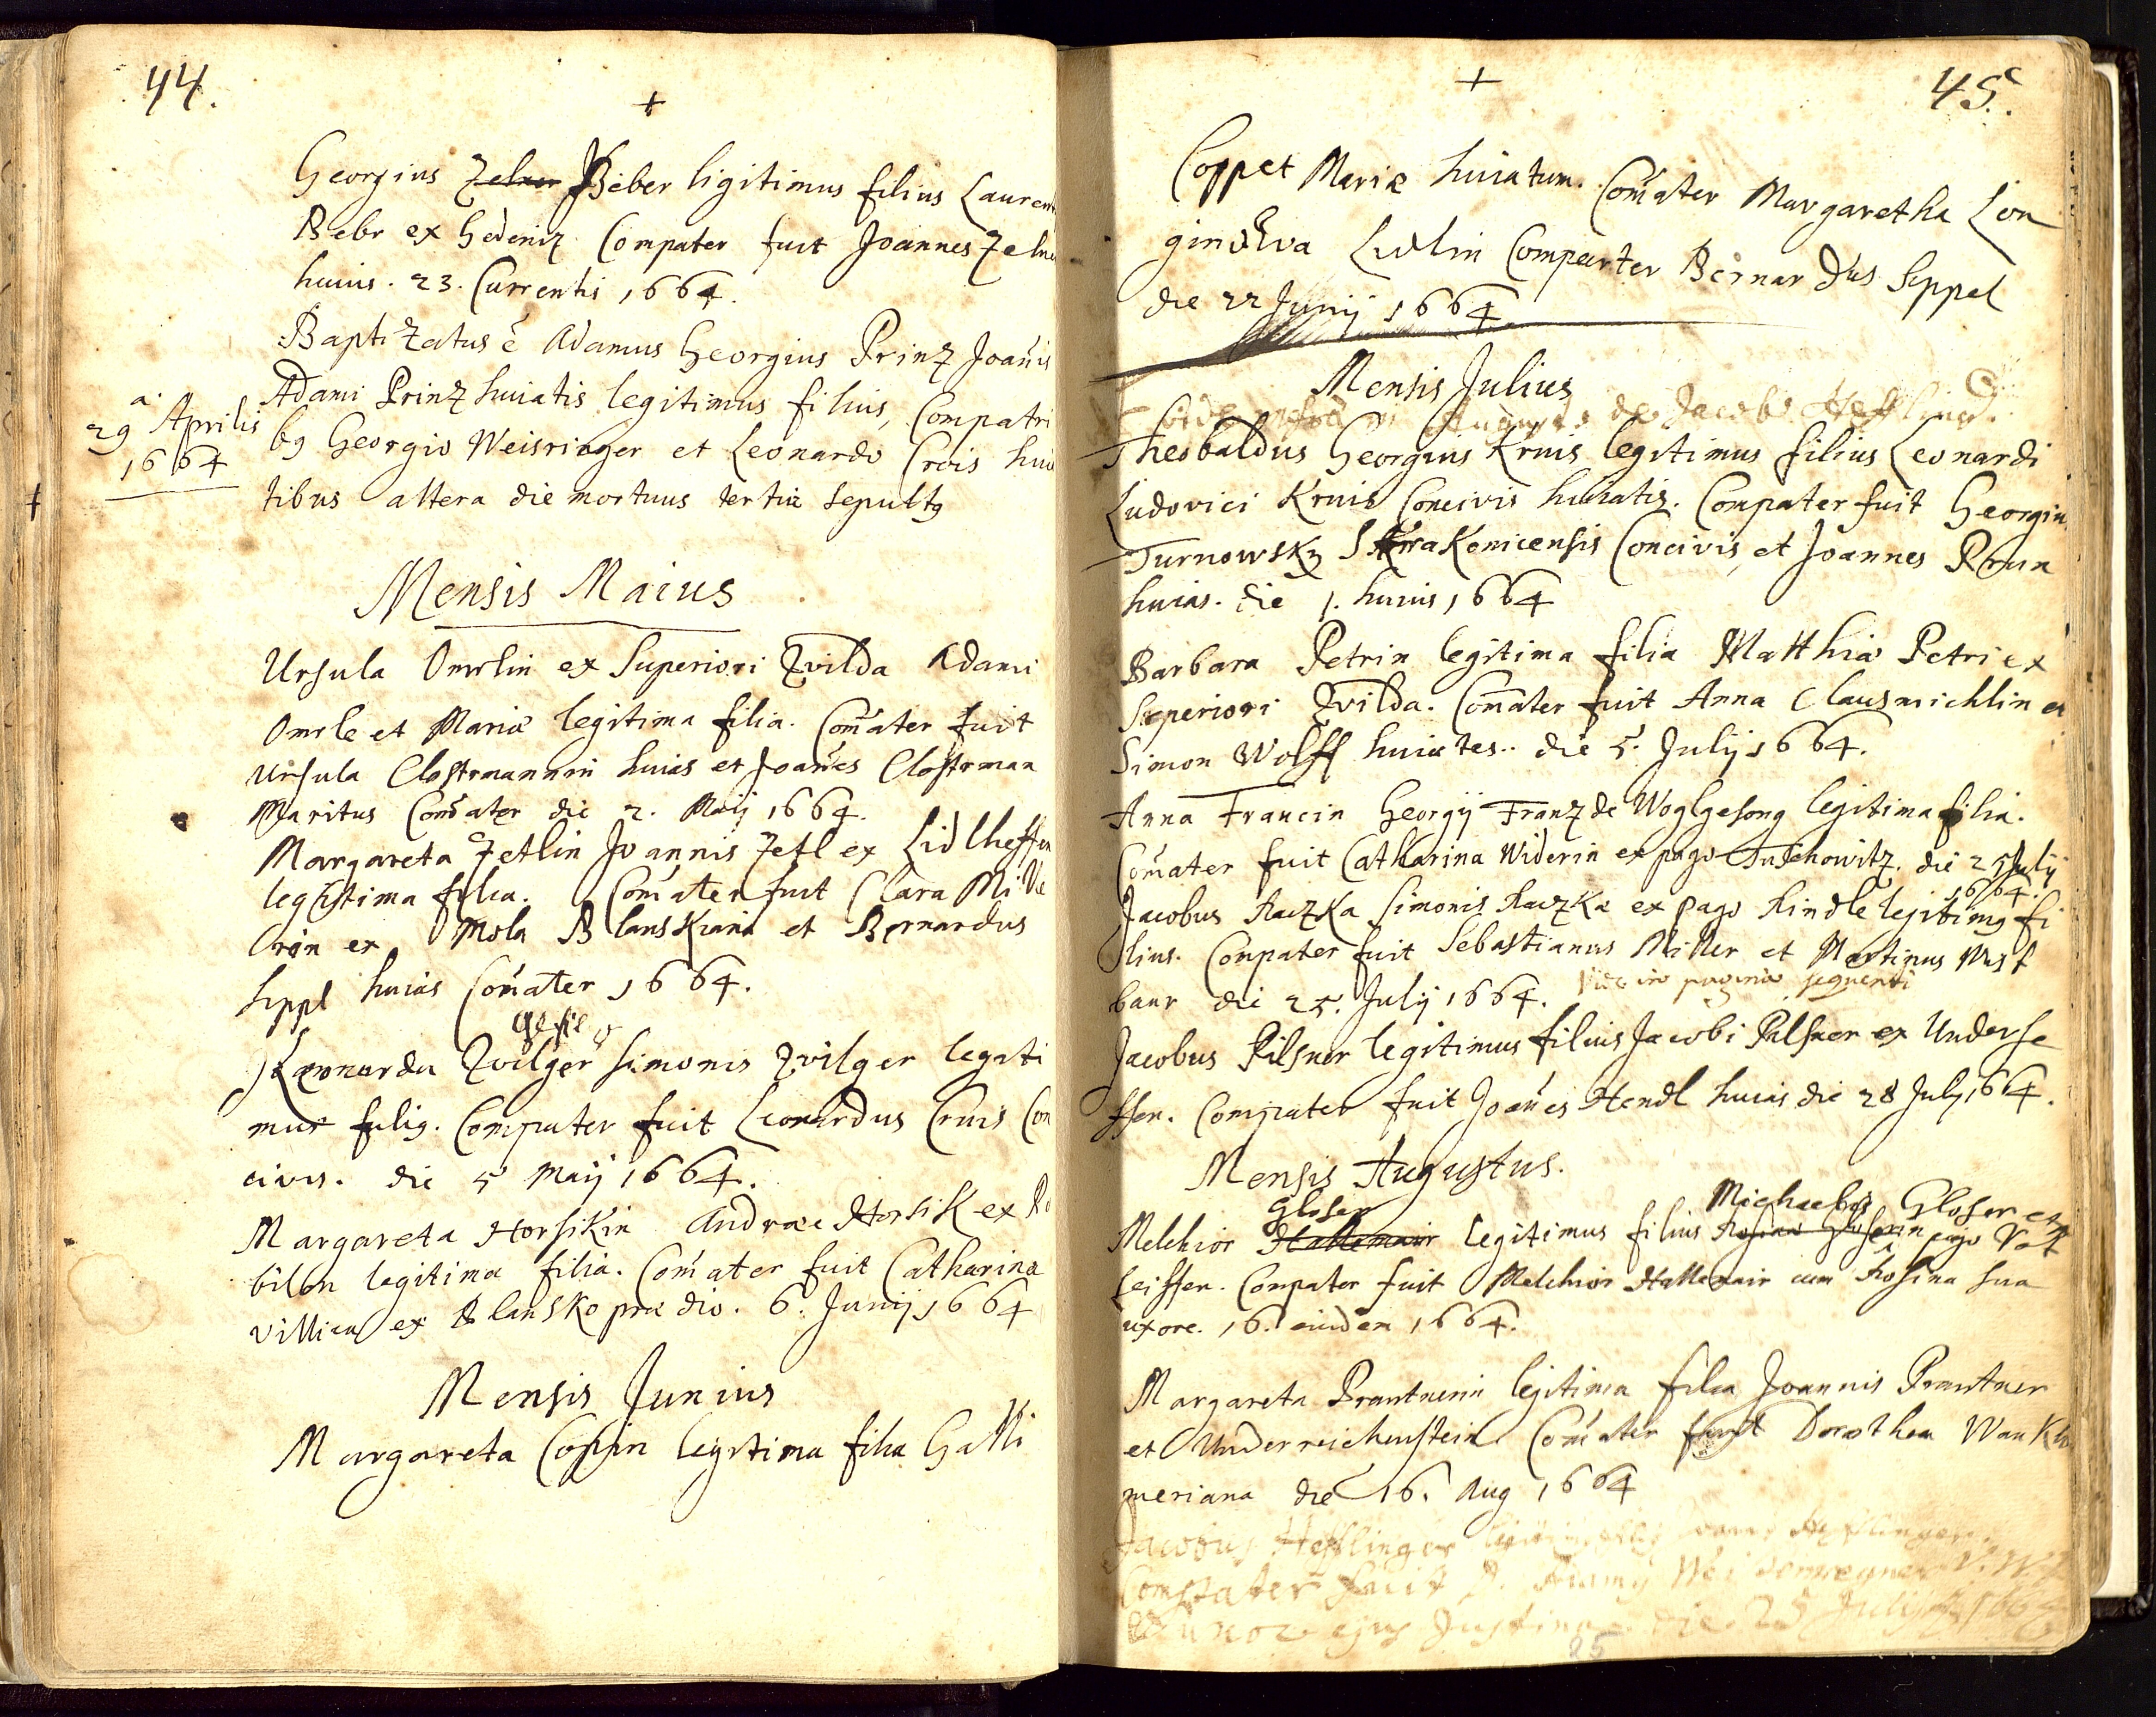 44.
+
Georgius Zelner Beber ligitimus filius Lauren
Bebr ex Hedeniz Compater fuit Joannes Zelne
huius. 23. Currentis 1664.
Baptizatus ẽ Adamus Georgius Prinz Joañis
Adami Prinz huiatis legitimus filius, Compatri
a.
29 Aprilis
1664
bg Georgio Weisringer et Leonardo Crois huia
tibus altera die mortuus tertia sepultg
Mensis Maius
Ursula Omrlin ex Superiori Zvilda Adami
Omrle et Mariæ legitima filia. Com̃ater fuit
Ursula Clostrmannin huias et Joañes Clostrman
Maritus Com̃ater die 2. Maij 1664.
Margareta Zetlin Joannis Zetl ex Lidlheffen
legitima filia. Com̃ater fuit Clara Mille
rin ex Mola Blanskiana et Bernardus
Seppl huias Com̃ater 1664.
Leonardu Zvilger Simonis Zvilger legiti
mus filig. Compater fuit Leonardus Cruis Con
civis. die 5 Maij 1664.
Margareta Horsikin Andreæ Horsik ex Ro
bilon legitima filia. Com̃ater fuit Catharina
villica ex Blansko prædio. 6. Junij 1664
Mensis Junius
Margareta Copin legitima filia Galli
+
45.
Coppet Mariæ huiatum. Com̃ater Margaretha Lon
gin Eva Lidlin Compater Bernardus Seppel
die 22 Junij 1664
Mensis Julius
de Jacobo Hefflinger
Theobaldus Georgius Kruis legitimus filius Leonardi
Ludovici Kruis Concivis huiatis. Compater fuit Georgiu
Turnowsky Strakonicensis Concivis, et Joannes Prun
huias. die 1. huius 1664
Barbara Petrin legitima filia Matthiæ Petri ex
Superiori Zvilda. Com̃ater fuit Anna Clausmichlin et
Simon Wolff huiates.. die 5. July 1664.
Anna Francin Georgij Franz de Woglgesong legitima filia.
Com̃ater fuit Catharina Widerin ex pago Tuschowitz. die 25 July
1664.
Jacobus Raczka Simonis Raczka ex pago Rindle legitimg fi
lius. Compater fuit Sebastianus Miller et Martinus Mist
baur die 25. July 1664. Vide in pagina sequenti
Jacobus Pilsner legitimus filius Jacobi Pilsner ex Underse
ffen. Compater fuit Joañes Hendl huias die 28 July 1664.
Mensis Augustus.
Gloser
Michaelis Gloser ex
Melchior Hallemair legitimus filius Rosina Gloserin pago Vat
leiffen. Compater fuit Melchior Hallemair cum Rosina sua
uxore. 16. eiusdem 1664.
Margareta Prantnerin legitima filia Joannis Prantner
et Underreichenstein. Com̃ater fuit Dorothea Wankho
meriana die 16. Aug 1664
Jacobus Hefflinger
Compater fuit
uxor ejus Justina die 25 July 1664
25